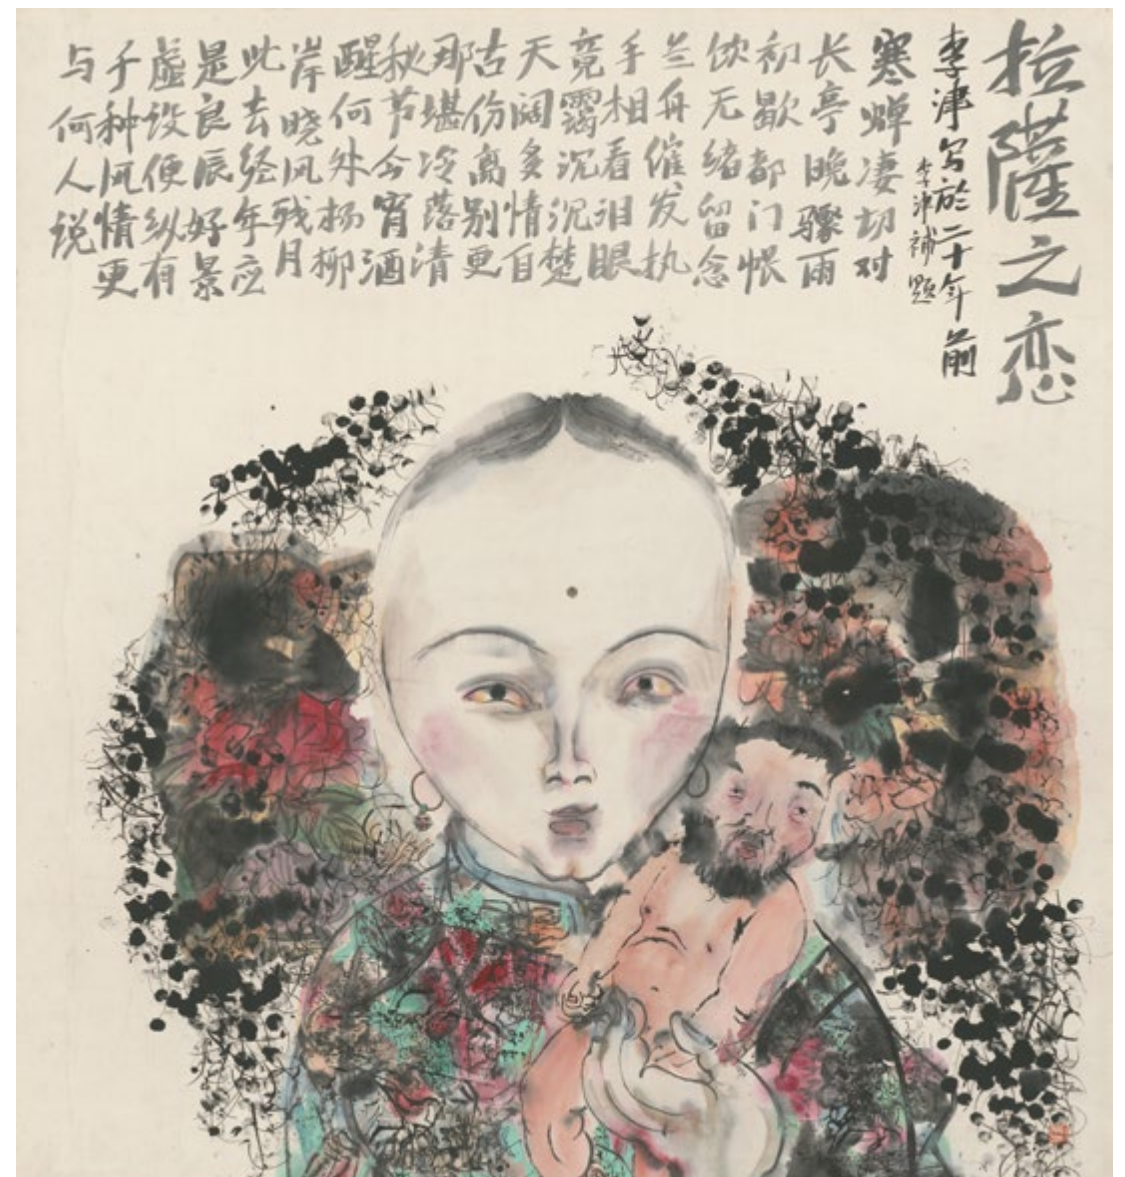 拉薩之恋
李津写於二十年前
李津補题
寒蝉凄切对
长亭晚骤雨
初歇都门帐
饮无绪留念
兰舟催发执
手相看泪眼
竟霭沉沉楚
天阔多情自
古伤离别更
那堪冷落清
秋节今宵酒
醒何处杨柳
岸晓风残月
此去经年应
是良辰好景
虚设便纵有
千种风情更
与何人说